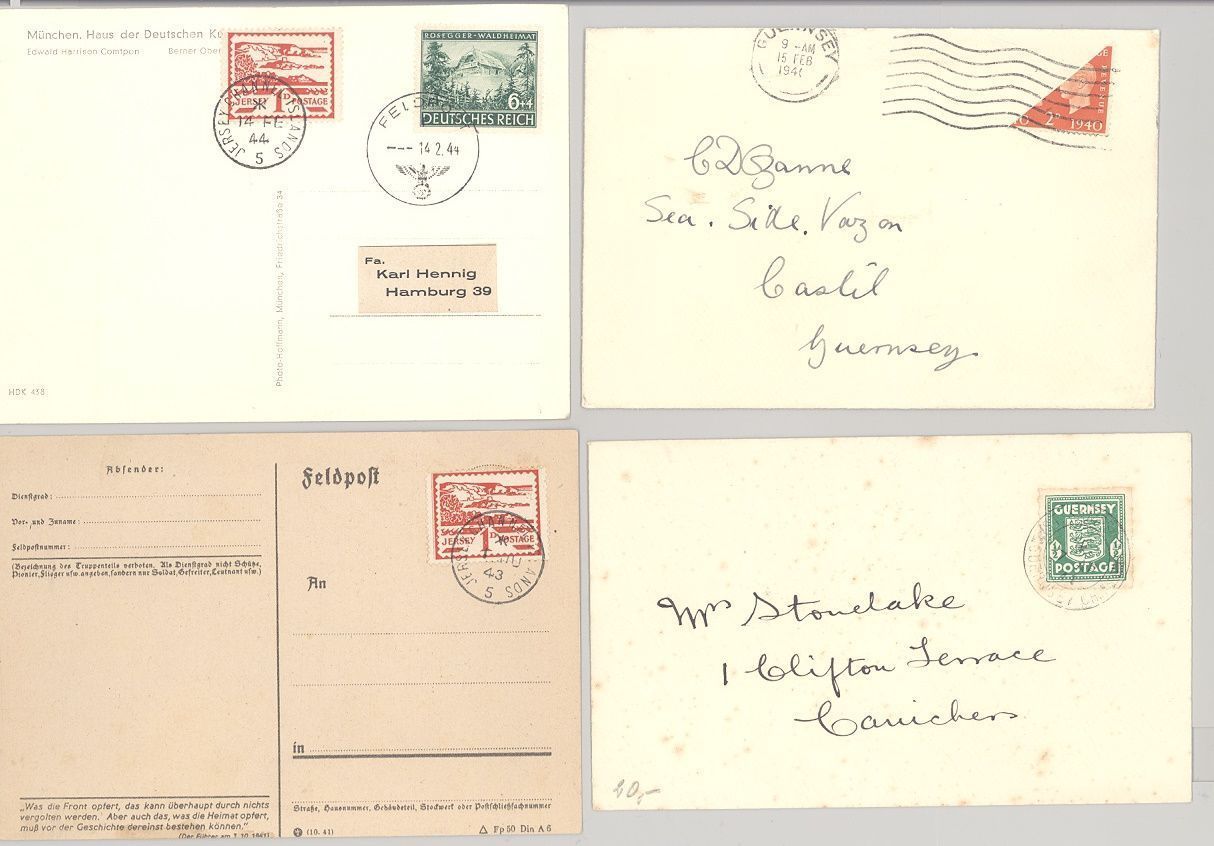 München. Haus der Deutschen
Edward Harrison Comtpon Berner Ober
JERSEY 1D POSTAGE
JERSEY CHANNEL ISLANDS
14 FE
44
5
ROSEGGER-WALDHEIMAT
6+4
DEUTSCHES REICH
FELDPOST
--- 14.2.44
Photo-Hoffmann, München, Friedrichstraße 34
Fa.
Karl Hennig
Hamburg 39
HDK 438
GUERNSEY
9 -AM
15 FEB
194
REVENUE
2D 1940
Sea. Side. Vazon
Castel
Guernsey
Absender:
Dienstgrad:
Vor- und Zuname:
Feldpostnummer:
(Bezeichnung des Truppenteils verboten. Als Dienstgrad nicht Schütze,
Pionier, Flieger usw. angeben, sondern nur Soldat, Gefreiter, Leutnant usw.)
„Was die Front opfert, das kann überhaupt durch nichts
vergolten werden. Aber auch das, was die Heimat opfert,
muß vor der Geschichte dereinst bestehen können.“
(Der Führer am 3. 10. 1941)
Feldpost
JERSEY 1D POSTAGE
JERSEY CHANNEL ISLANDS
43
5
An
in
Straße, Hausnummer, Gebäudeteil, Stockwerk oder Postschließfachnummer
(10. 41)
Fp 50 Din A 6
GUERNSEY
½ ½
POSTAGE
Mrs Stonelake
1 Clifton Terrace
Canichers
20,-